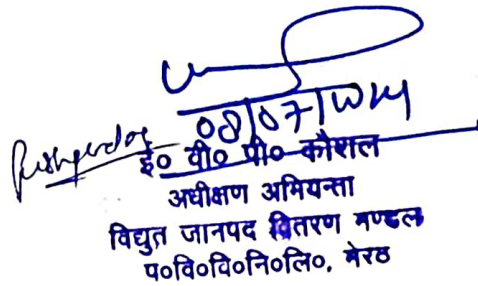 08/07/2014
ई० वी० पी० कौशल
अधीक्षण अभियन्ता
विद्युत जानपद वितरण मण्डल
प०वि०वि०नि०लि०, मेरठ